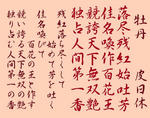 牡丹　皮日休
落尽残紅始吐芳
佳名喚作百花王
競誇天下無双艶
独占人間第一香
残紅落ち尽くして
始めて芳を吐く
佳名喚びて
百花の王と作す
競い誇る天下無双の艶
独り占む人間第一の香